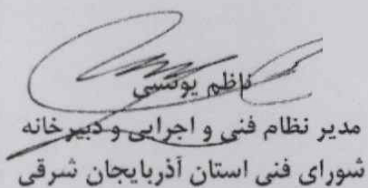 ناظم یونسی
مدیر نظام فنی و اجرایی و دبیرخانه
شورای فنی استان آذربایجان شرقی